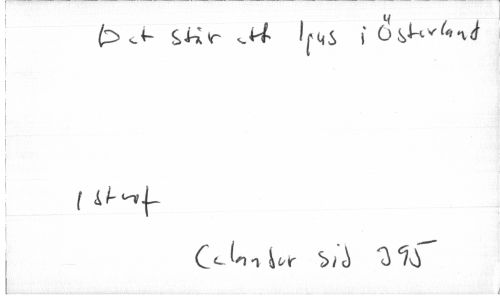 Det står ett ljus i Österland
1 strof
Celander sid 395